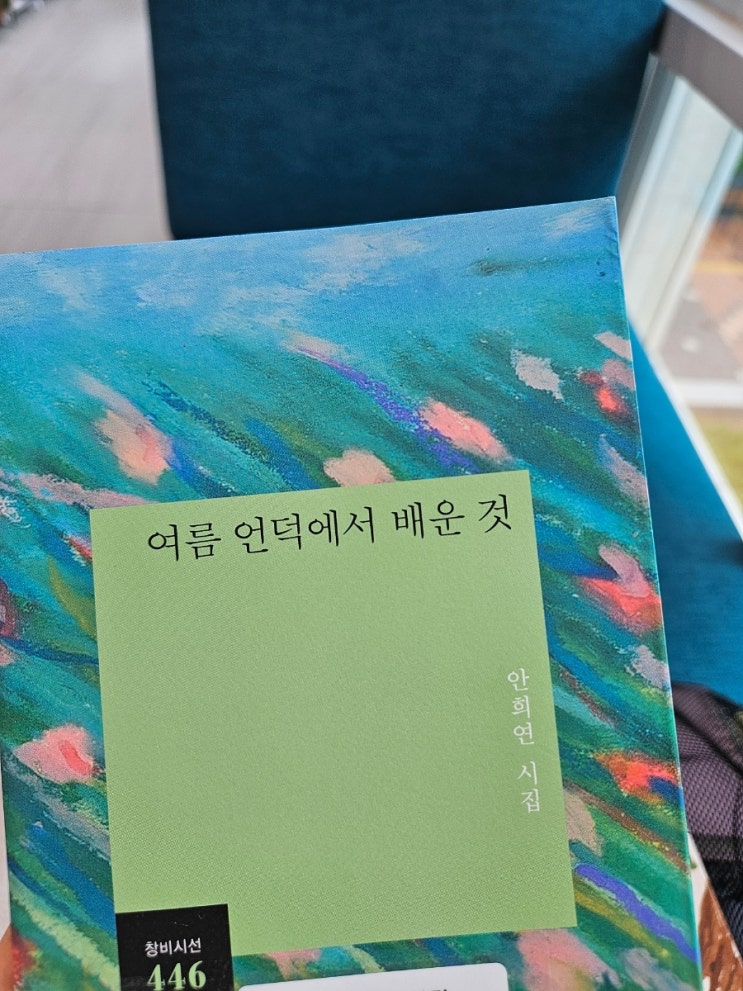 여름 언덕에서 배운 것
안희연 시집
창비시선
446